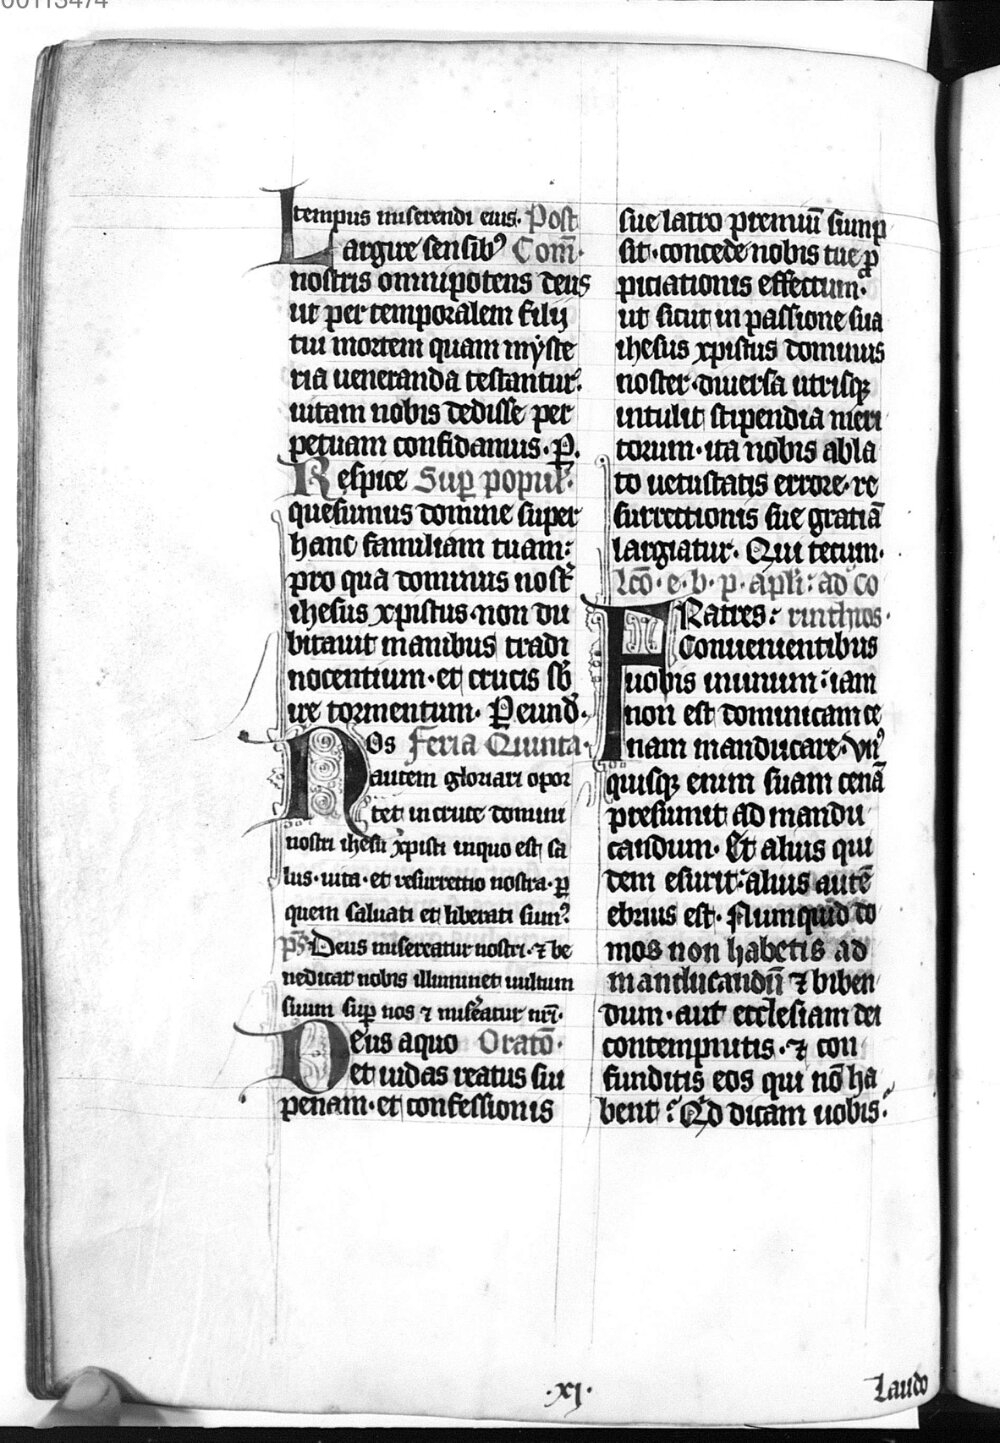 00113474
tempus miserendi eius. Post
Largire sensibꝰ Com̄.
nostris omnipotens deus
ut per temporalem filij
tui mortem quam myste
ria ueneranda testantur.
uitam nobis dedisse per
petuam confidamus. P.
Respice Suꝑ popul.
quesumus domine super
hanc familiam tuam:
pro qua dominus nost̄
ihesus xpistus non du
bitauit manibus tradi
nocentium. et crucis sb̄
ire tormentum. P eund̄.
Nos Feria Quinta.
autem gloriari opor
tet in cruce domini
nostri ihesu xpisti in quo est sa
lus. uita. et resurrectio nostra. ꝑ
quem saluati et liberati sumꝰ
ps̄. Deus misereatur nostri. ⁊ be
nedicat nobis illuminet uultum
suum suꝑ nos ⁊ mis̄eatur nr̄i.
Deus a quo Oratō.
et iudas reatus sui
penam. et confessionis
sue latro premiū sump
sit. concede nobis tue ꝓ
piciationis effectum.
ut sicut in passione sua
ihesus xpistus dominus
noster. diuersa utrisqꝫ
intulit stipendia meri
torum. ita nobis abla
to uetustatis errore. re
surrectionis sue gratiā
largiatur. Qui tecum.
Lcō. e. b. p. apli. ad co
FRatres: rinthios.
Conuenientibus
uobis in unum: iam
non est dominicam ce
nam manducare. Vnꝰ
quisqꝫ enim suam cenā
presumit ad mandu
candum. Et alius qui
dem esurit: alius autē
ebrius est. Numquid do
mos non habetis ad
manducandū ⁊ biben
dum. aut ecclesiam dei
contempnitis. ⁊ con
funditis eos qui nō ha
bent: Qd dicam uobis.
.xj.
Laudo